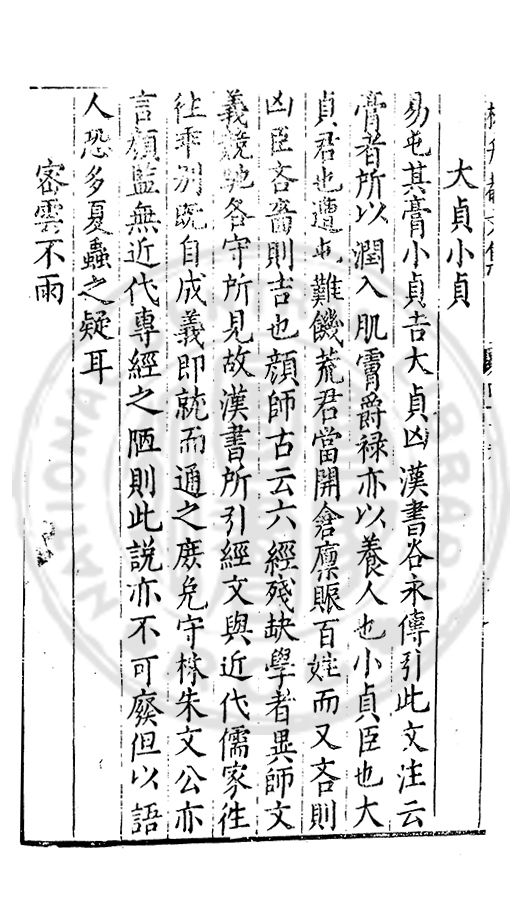 大貞小貞
易屯其膏小貞吉大貞凶漢書谷永傳引此文注云
膏者所以潤入肌膚爵祿亦以養人也小貞臣也大
貞君也遭屯難饑荒君當開倉廩賑百姓而又吝則
凶臣吝嗇則吉也顔師古云六經殘缺學者異師文
義競馳各守所見故漢書所引經文與近代儒家往
往乖別既自成義即就而通之庶免守株朱文公亦
言顔監無近代專經之陋則此說亦不可廢但以語
人恐多夏蟲之疑耳
密雲不雨